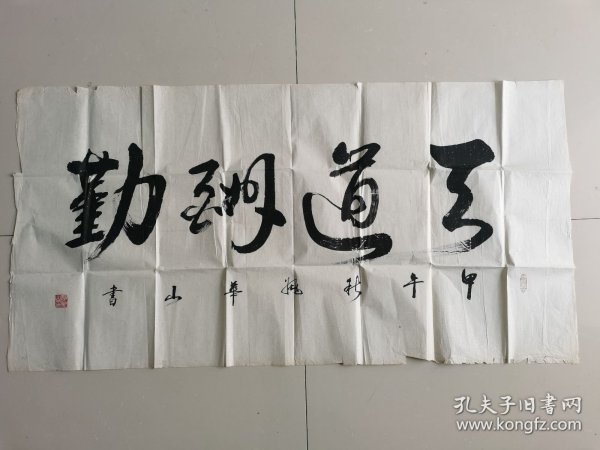 天道酬勤
甲午秋姚華山書
孔夫子旧书网
www.kongfz.com